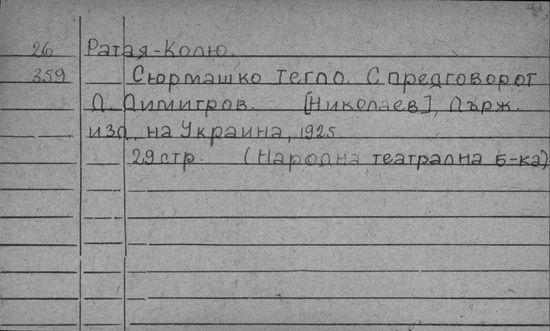 26 Ратая-Колю.
359 Сюрмашко тегло. С предговор от
Д. Димитров. [Николаев], Държ.
изд. на Украина, 1925.
29 стр. (Народна театрална б-ка)